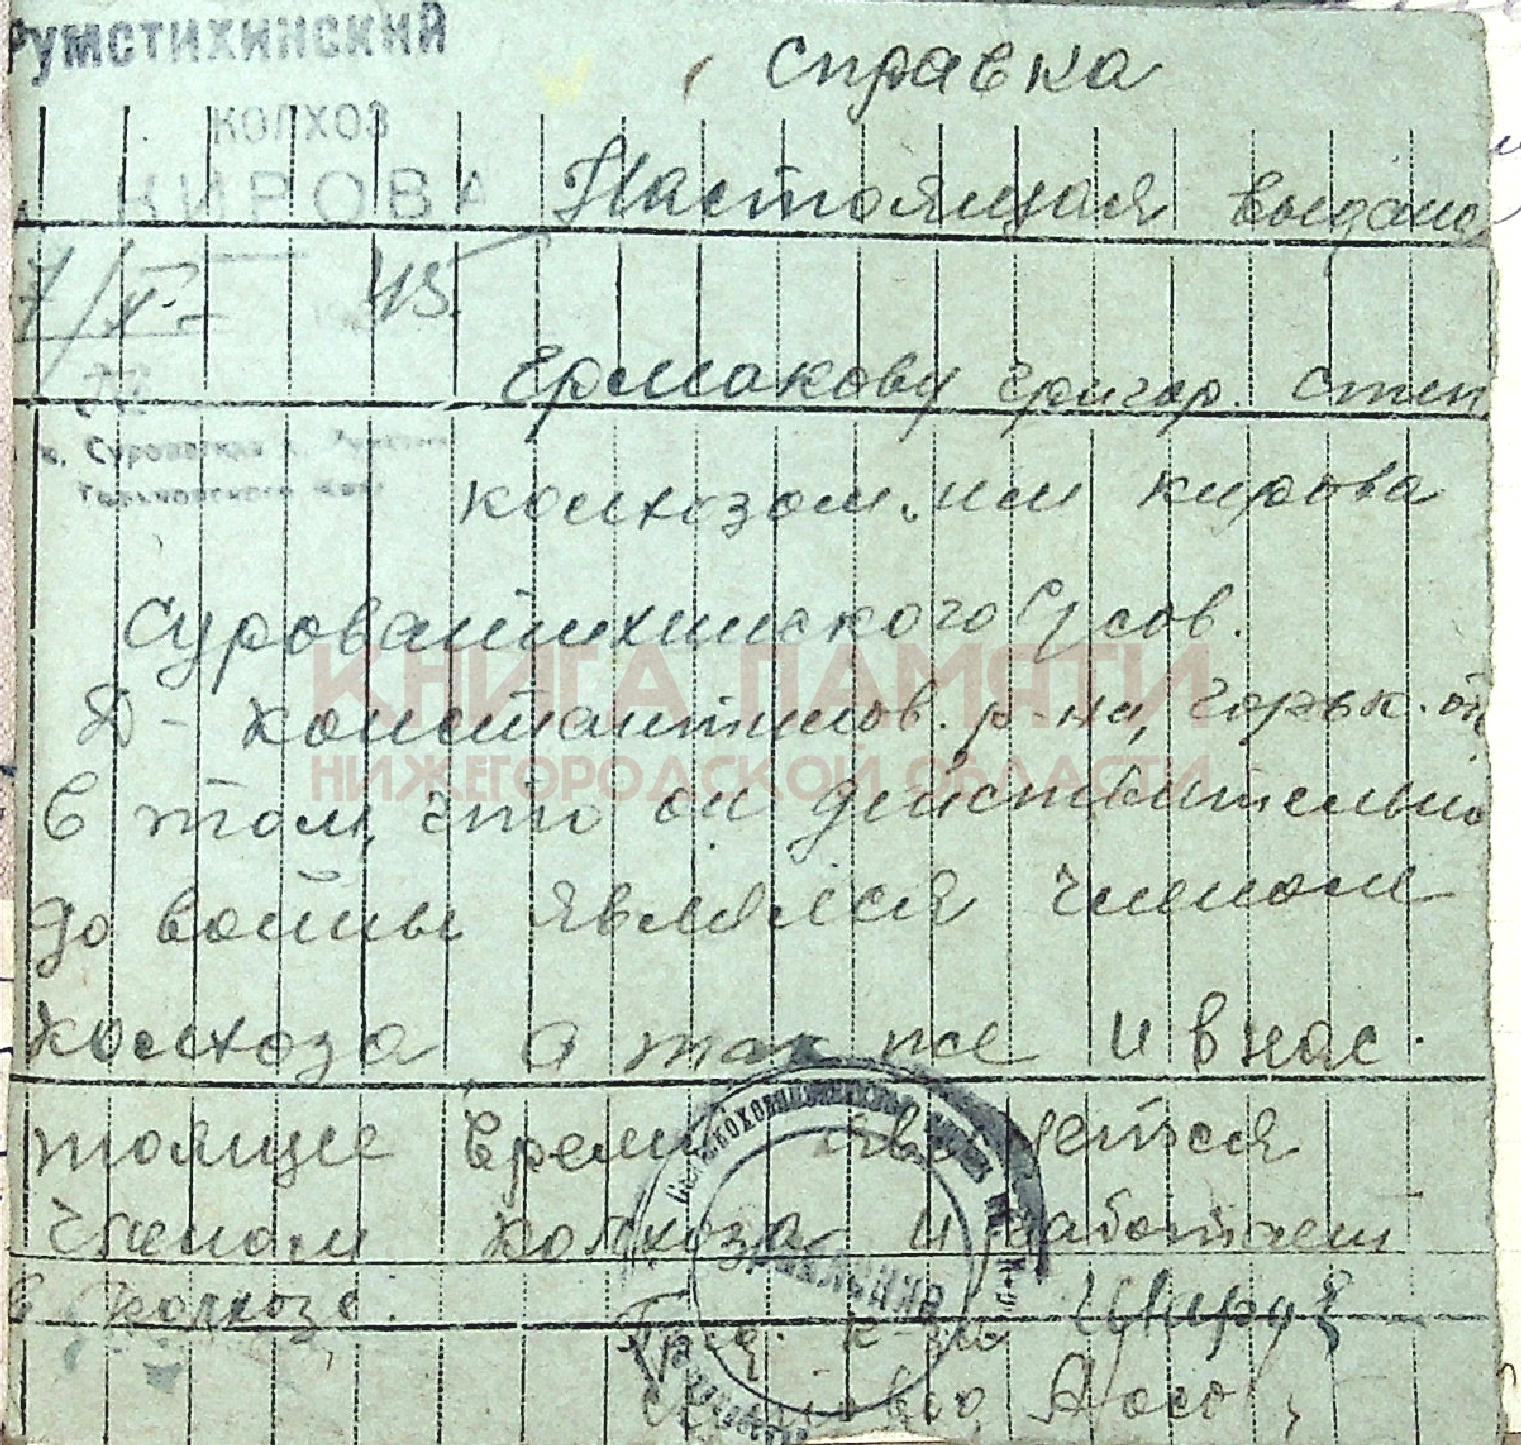 Румстихинский
Справка
КОЛХОЗ
КИРОВА
Настоящая выдана
7/XI 45
Ермакову Григор. Степ
колхозом им Кирова
Суроватихинского с/сов.
Д-Константинов. р-на, Горьк. об
в том, что он действительно
до войны являлся членом
колхоза а так же и в нас.
тоящее время является
членом колхоза и работает
в колхозе.
Пред. к-за
КНИГА ПАМЯТИ
НИЖЕГОРОДСКОЙ ОБЛАСТИ